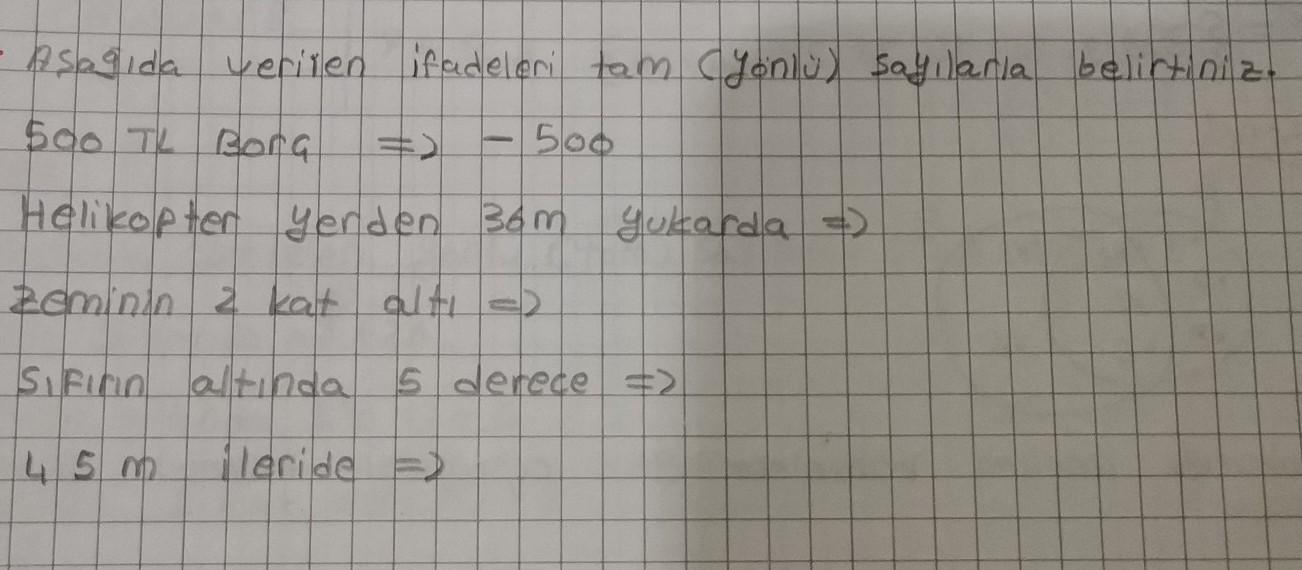 Aşağıda verilen ifadeleri tam (yönlü) sayılarla belirtiniz.
500 TL Borç => - 500
Helikopter yerden 36m yukarda =>
zeminin 2 kat altı =>
Sıfırın altında 5 derece =>
45 m ileride =>